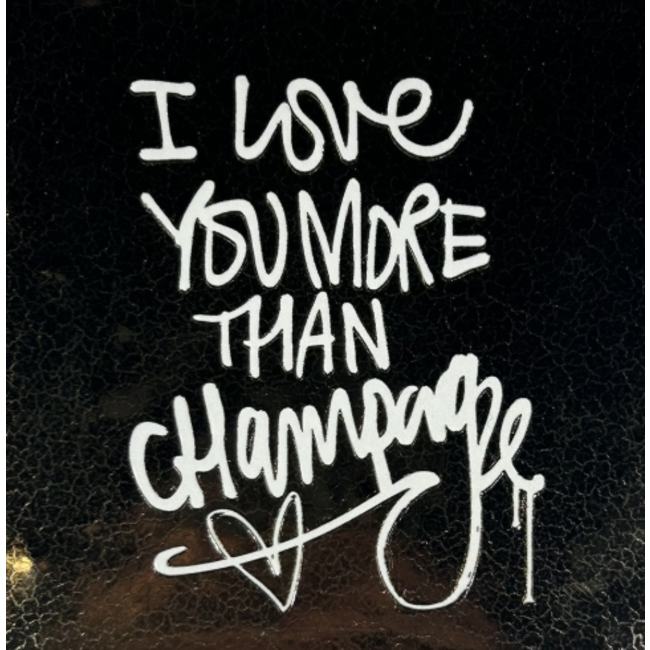 I Love
YOU MORE
THAN
CHampagne